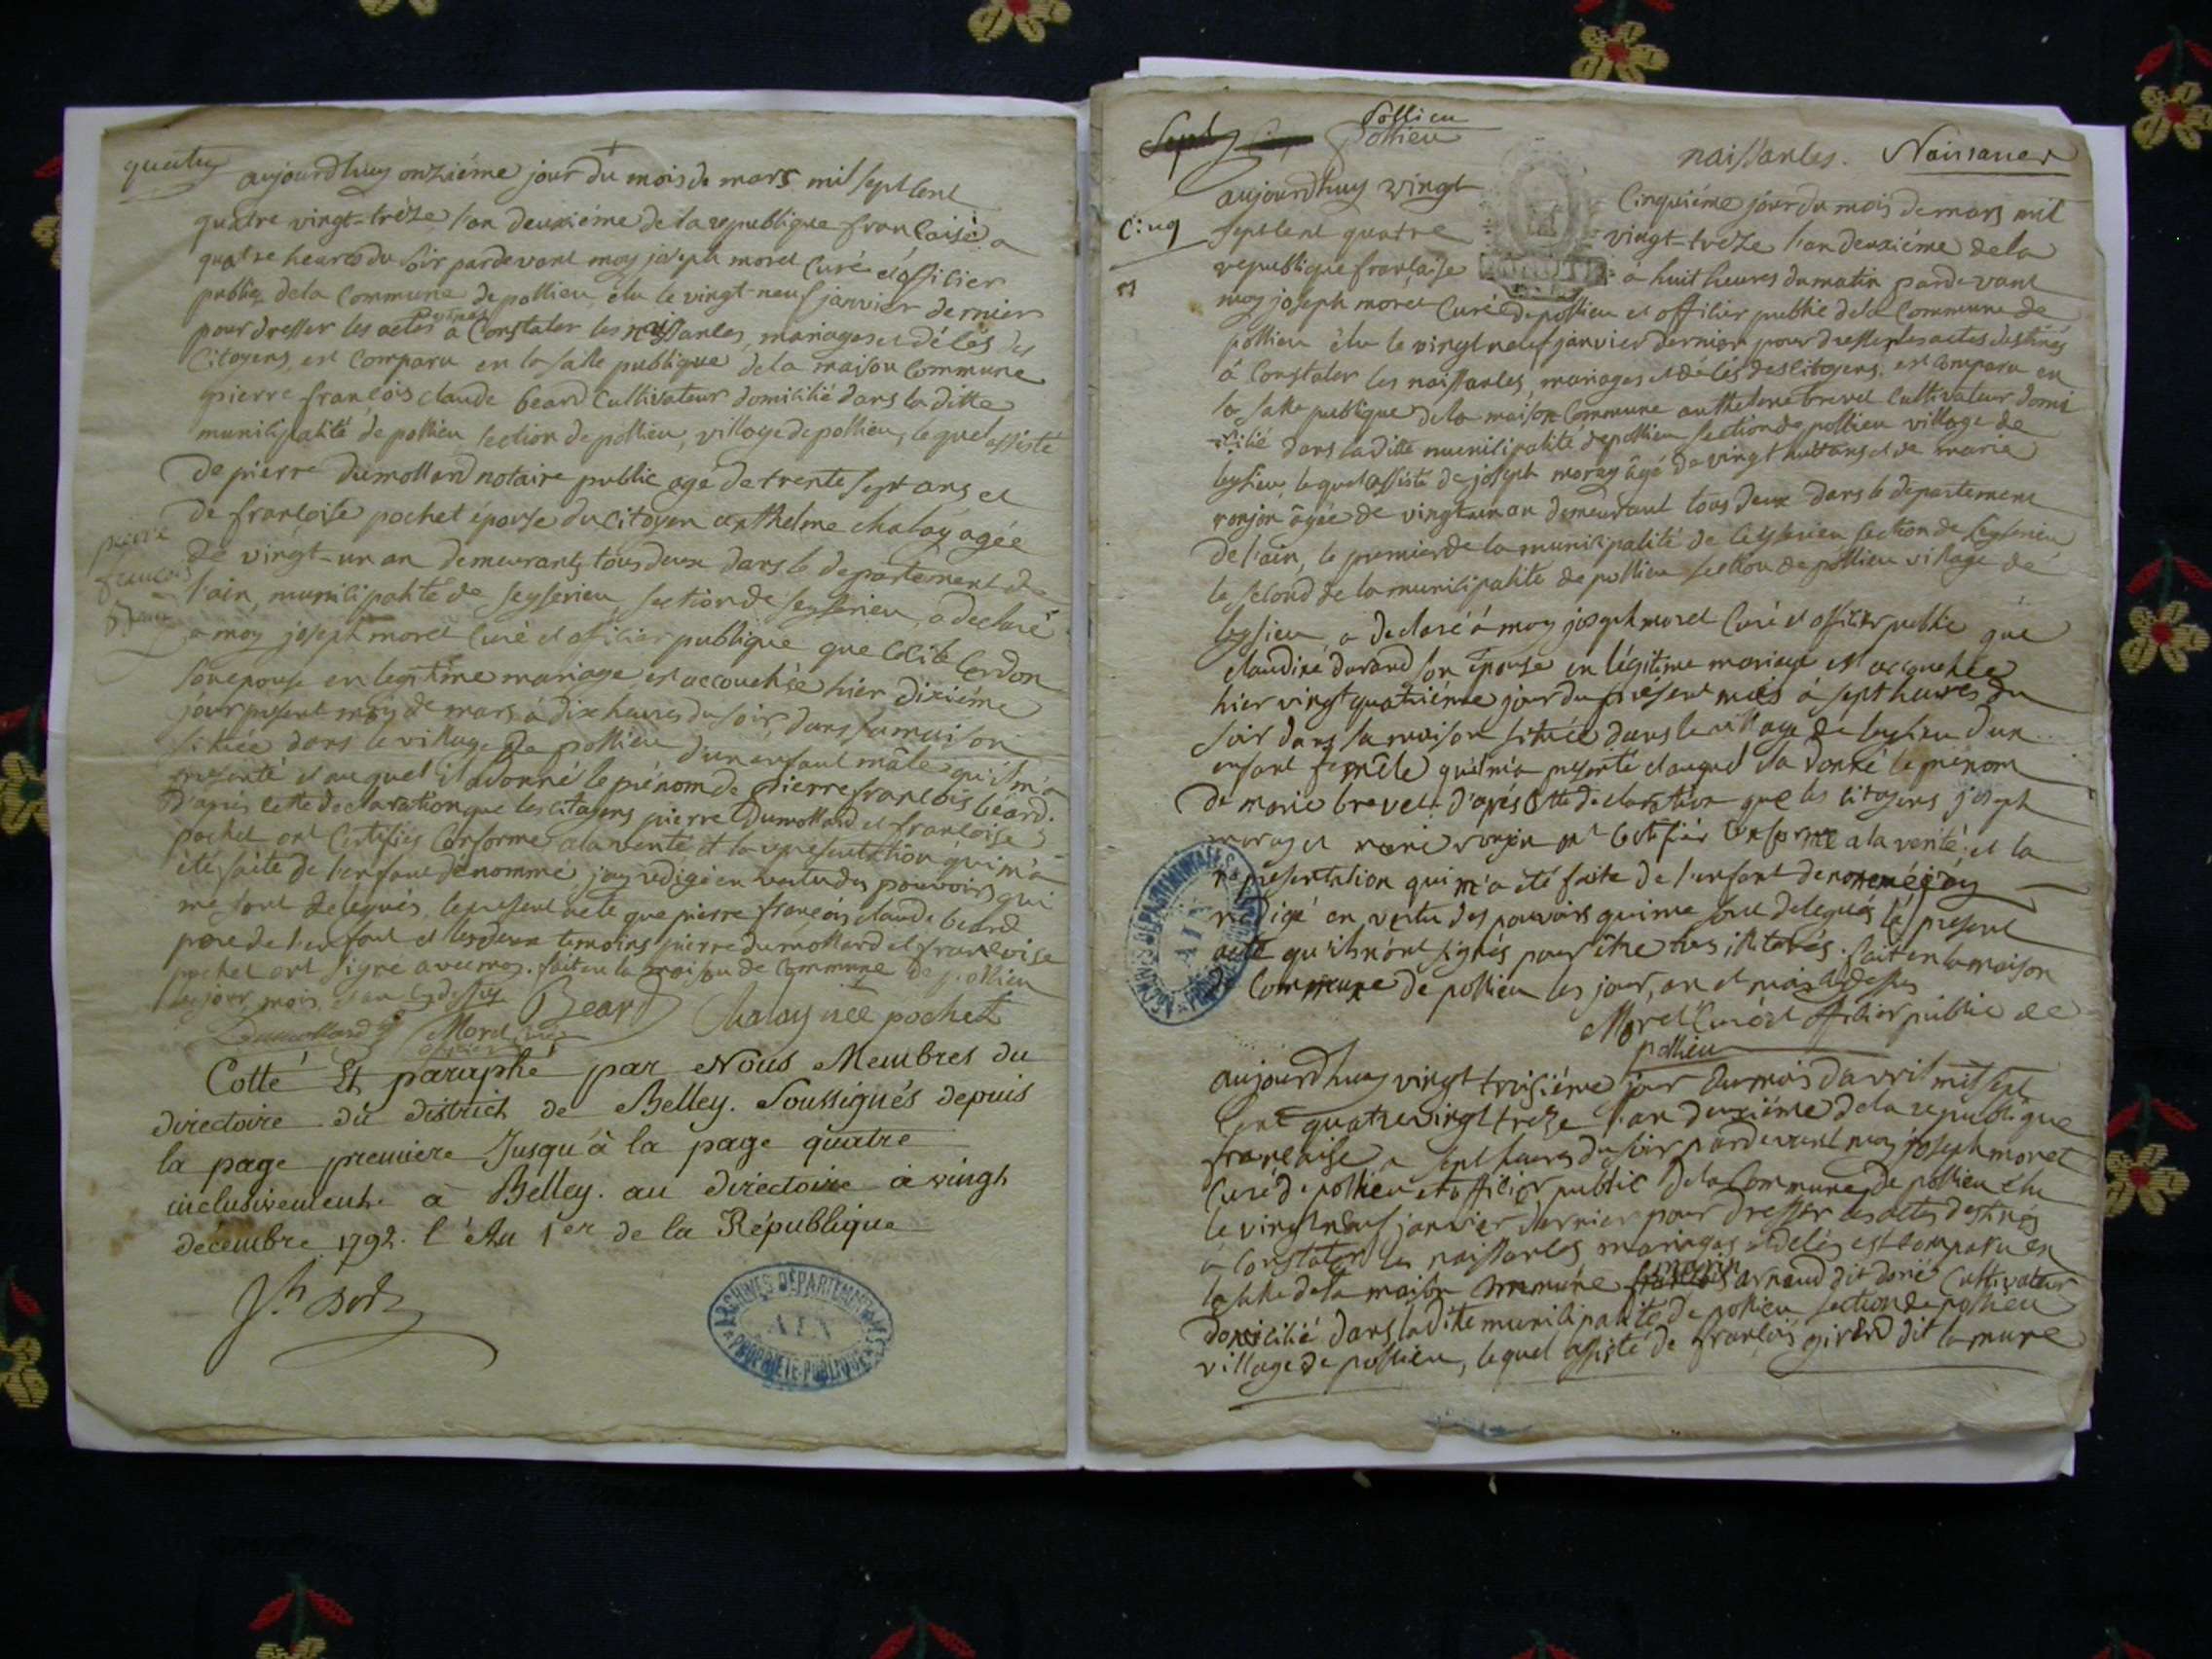 quatre
aujourdhuy onziéme jour du mois de mars mil sept cent
quatre vingt-trèze l'an deuxiéme de la republique francaise a
quatre heures du soir pardevant moy joseph morel Curé et officier
public de la Commune de pollieu, élu le vingt-neuf janvier dernier
destinés
pour dresser les actes a Constater les naissances, mariages et décés des
Citoyens, est Comparu en la salle publique de la maison Commune
pierre françois claude beard Cultivateur domicilié dans la ditte
municipalité de pollieu section de pollieu, village de pollieu, lequel assisté
de pierre dumollard notaire public agé de trente sept ans et
de francoise pochet épouse du Citoyen anthelme chalay agée
pierre
francois
Beard
de vingt-un an demeurants tous deux dans le departement de
l'ain, municipalité de seyserieu section de seyserieu, a declaré
a moy joseph morel Curé et officier publique que Cécile Cerdon
son epouse en legitime mariage est accouchée hier dixiéme
jour present mois de mars à dix heures du soir, dans sa maison
située dans le village de pollieu d'un enfant mâle qu'il m'a
presenté et auquel il a donné le prénom de pierre francois beard.
D'après cette declaration que les citoyens pierre Dumollard et francoise
pochet ont Certifiés Conforme a la verité et la representation qui m'a
été faite de l'enfant dénommé, j'ay rédigé en vertu des pouvoirs qui
me sont delegués, le present acte que pierre françois claude beard
père de l'enfant et les deux temoins pierre dumollard et francoise
pochet ont signé avec moy. fait en la maison de Commune de pollieu
les jour, mois et an cy dessus
Beard Chalay née pochet
Dumollard Morel curé
Cotté Et paraphé par Nous Membres du
directoire du district de Belley. Soussignés depuis
la page premiere Jusqu'à la page quatre
inclusivement. à Belley. au directoire à vingt
decembre 1792. l'An 1er de la République
ARCHIVES DÉPARTEMENTALES
AIN
PROPRIÉTÉ PUBLIQUE
Pollieu
Pollieu
naissances. Naissances
Cinq
aujourdhuy vingt Cinquiéme jour du mois de mars mil
sept cent quatre vingt-trèze l'an deuxiéme de la
republique française a huit heures du matin pardevant
moy joseph morel Curé de pollieu et officier public de la Commune de
pollieu élu le vingt neuf janvier dernier pour dresser les actes destinés
à Constater les naissances, mariages et décés des Citoyens, est Comparu en
la salle publique de la maison Commune anthelme brevet Cultivateur domi
cilié dans la ditte municipalité de pollieu section de pollieu village de
leysieu, lequel assisté de joseph moray âgé de vingt huit ans et de marie
ronjon âgée de vingt un an demeurant tous deux dans le departement
de l'ain, le premier de la municipalité de Ceyserieu section de Ceyserieu
le second de la municipalité de pollieu section de pollieu village de
leysieu, a declaré à moy joseph morel Curé et officier public que
claudine durand son épouse en légitime mariage est accouchée
hier vingt quatriéme jour du présent mois à sept heures du
soir dans sa maison située dans le village de leysieu d'un
enfant femêle qu'il m'a presenté et auquel il a donné le prénom
de marie brevet. d'après Cette declaration que les citoyens joseph
moray et marie ronjon ont Certifiés Conforme a la verité et la
representation qui m'a été faite de l'enfant denommé j'ay
redigé en vertu des pouvoirs qui me sont delegués le present
acte qu'ils n'ont signés pour être tous illiterés. fait en la maison
de Commune de pollieu les jour, an et mois cy dessus
Morel Curé et officier public de
pollieu
ARCHIVES DÉPARTEMENTALES
AIN
aujourdhuy vingt troisiéme jour du mois d'avril mil sept
cent quatre vingt treze l'an deuxiéme de la republique
française a sept heures du soir pardevant moy joseph morel
Curé de pollieu et officier public de la Commune de pollieu élu
le vingt neuf janvier dernier pour dresser les actes destinés
à Constater les naissances mariages et décés est comparu en
la salle de la maison Commune arnaud dit doné Cultivateur
domicilié dans la dite municipalité de pollieu section de pollieu
village de pollieu, lequel assisté de françois girerd dit la mure